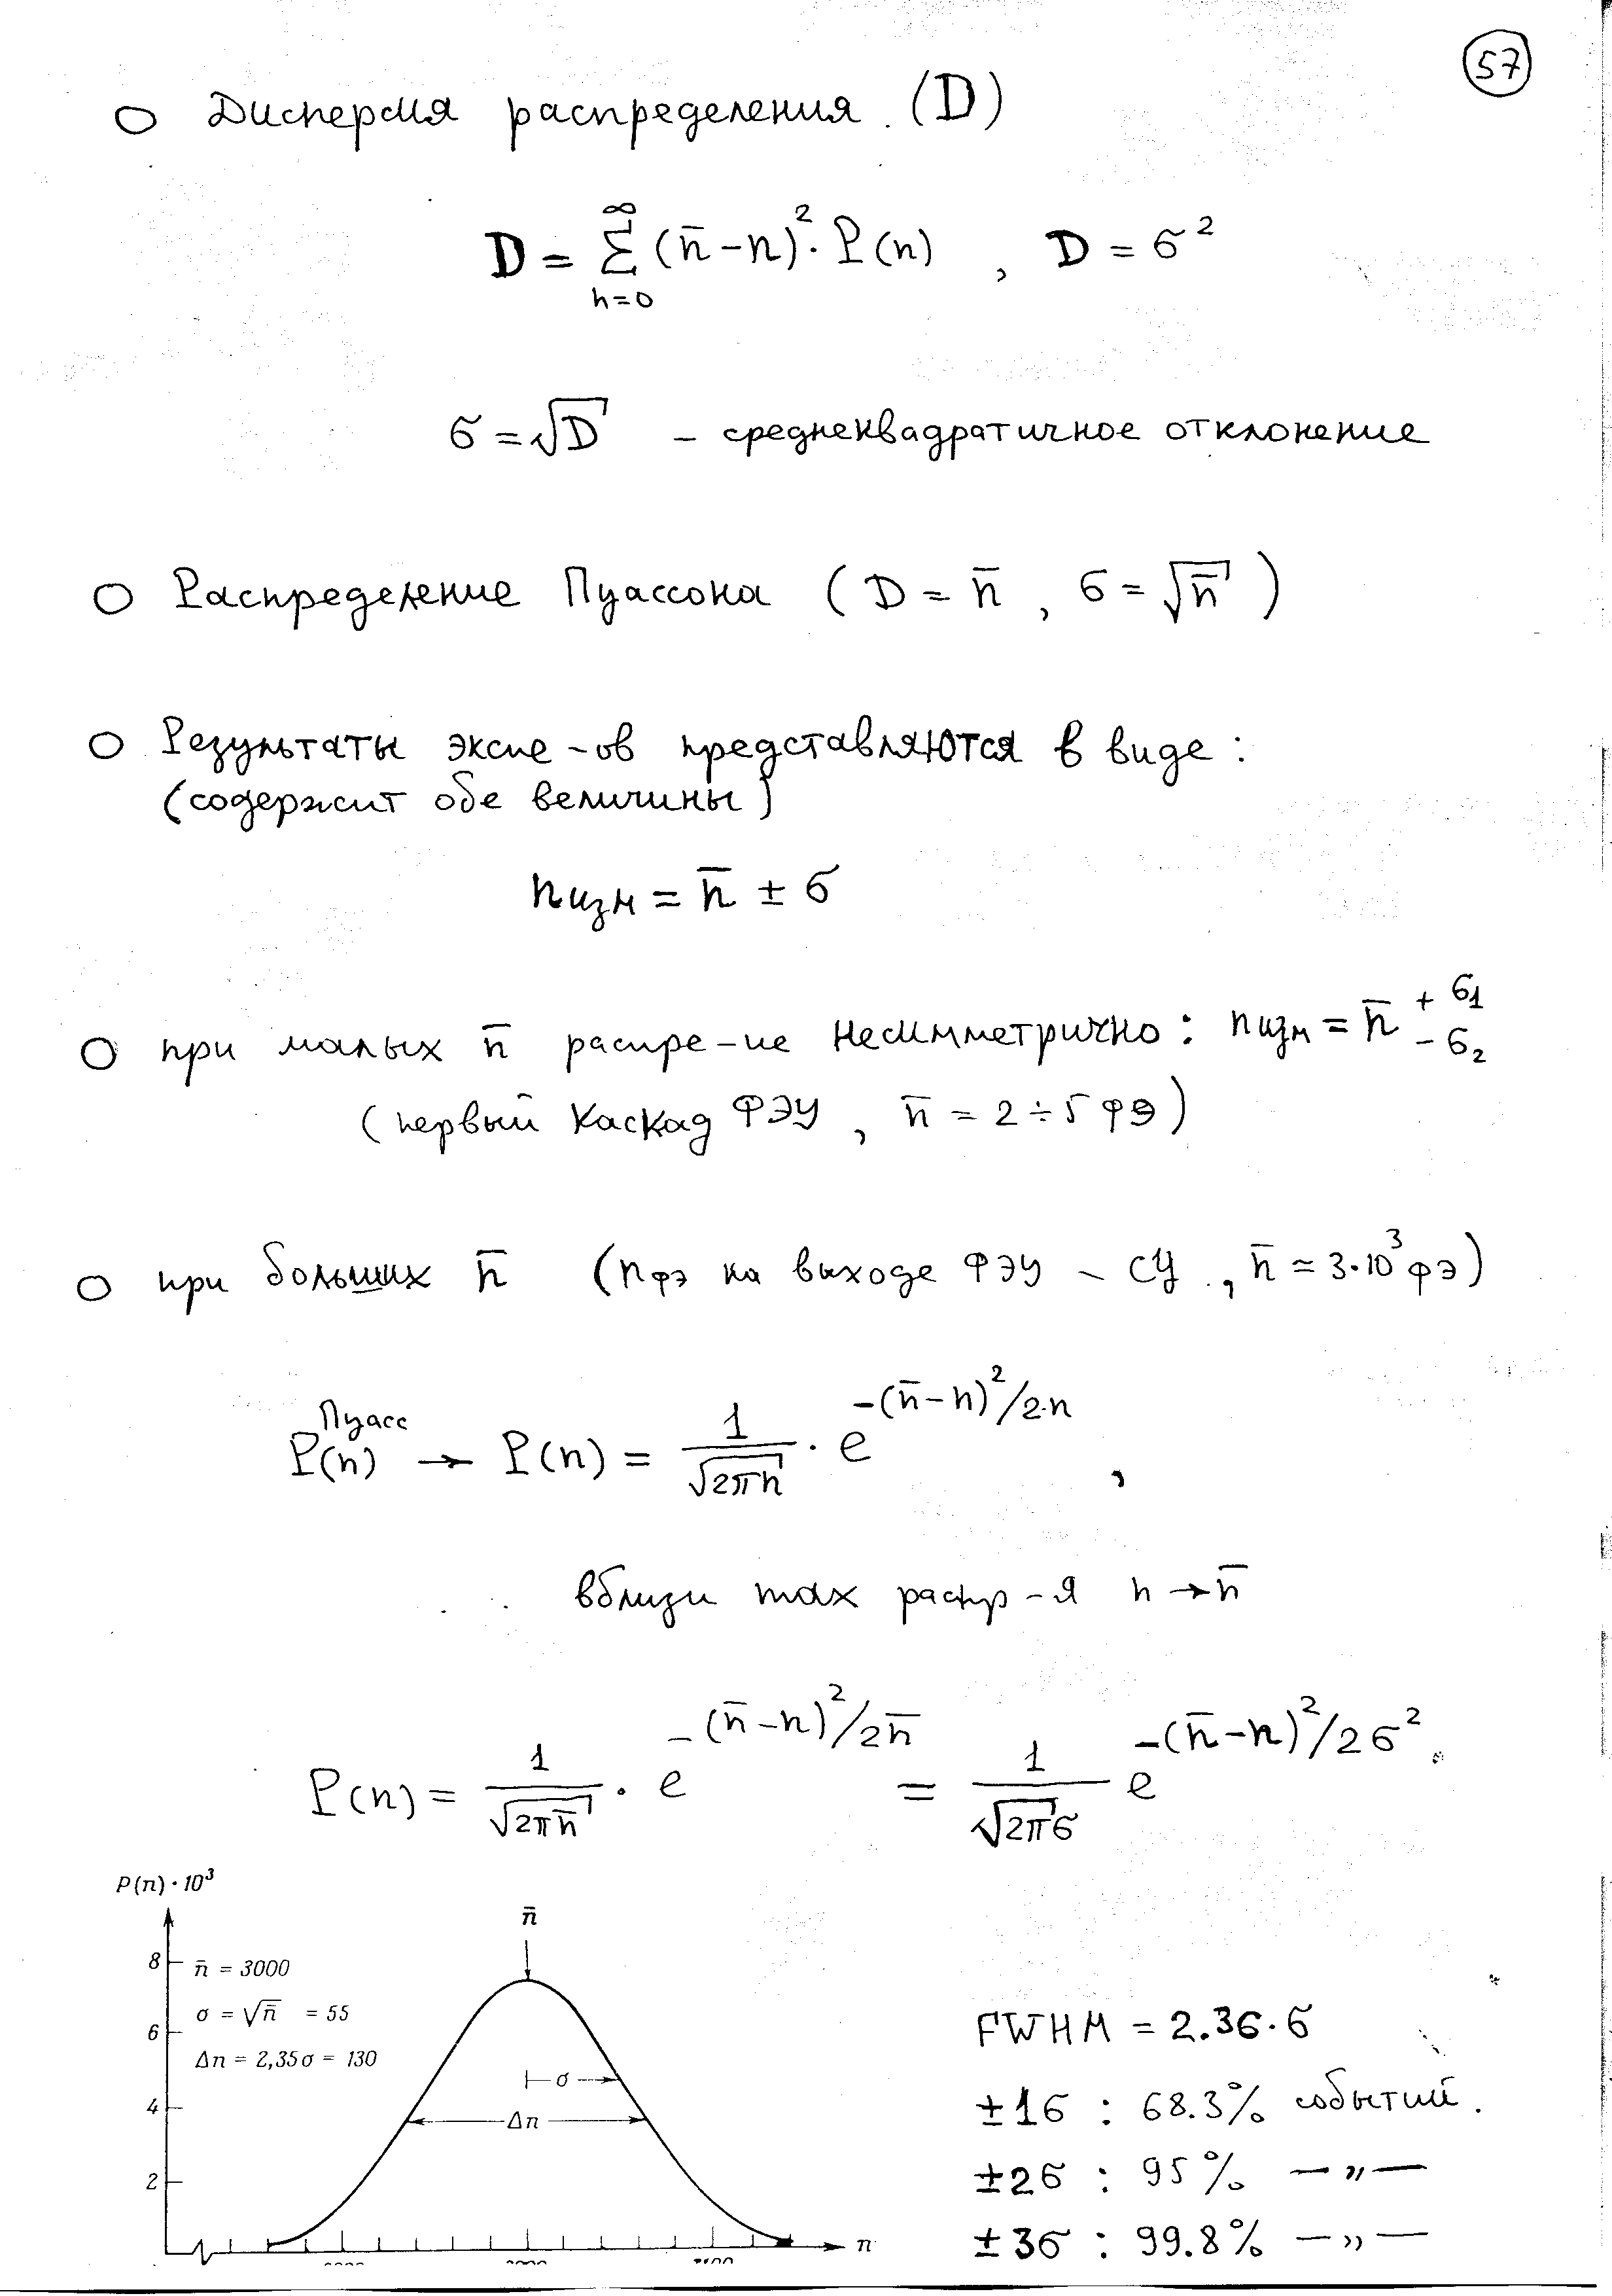 57
○ Дисперсия распределения (D)
D = ∑_{n=0}^{∞} (n̄ - n)² · P(n) , D = σ²
σ = √D - среднеквадратичное отклонение
○ Распределение Пуассона (D = n̄, σ = √n̄)
○ Результаты экспе-ов представляются в виде:
(содержит обе величины)
nизм = n̄ ± σ
○ при малых n̄ распре-ие несимметрично: nизм = n̄ +σ₁ -σ₂
(первый каскад ФЭУ, n̄ = 2÷5 фэ)
○ при больших n̄ (nфэ на выходе ФЭУ - СЦ, n̄ ≃ 3·10³ фэ)
P(n)^{Пуасс} → P(n) = 1/√(2πn) · e^{-(n̄-n)²/2·n} ,
вблизи max распр-я n → n̄
P(n) = 1/√(2πn̄) · e^{-(n̄-n)²/2n̄} = 1/(√2π σ) e^{-(n̄-n)²/2σ²}.
P(n)·10³
n̄
8
n̄ = 3000
σ = √n̄ = 55
6
Δn = 2,35σ = 130
σ
4
Δn
2
n
FWHM = 2.36·σ
±1σ : 68.3% событий.
±2σ : 95% —„—
±3σ : 99.8% —„—